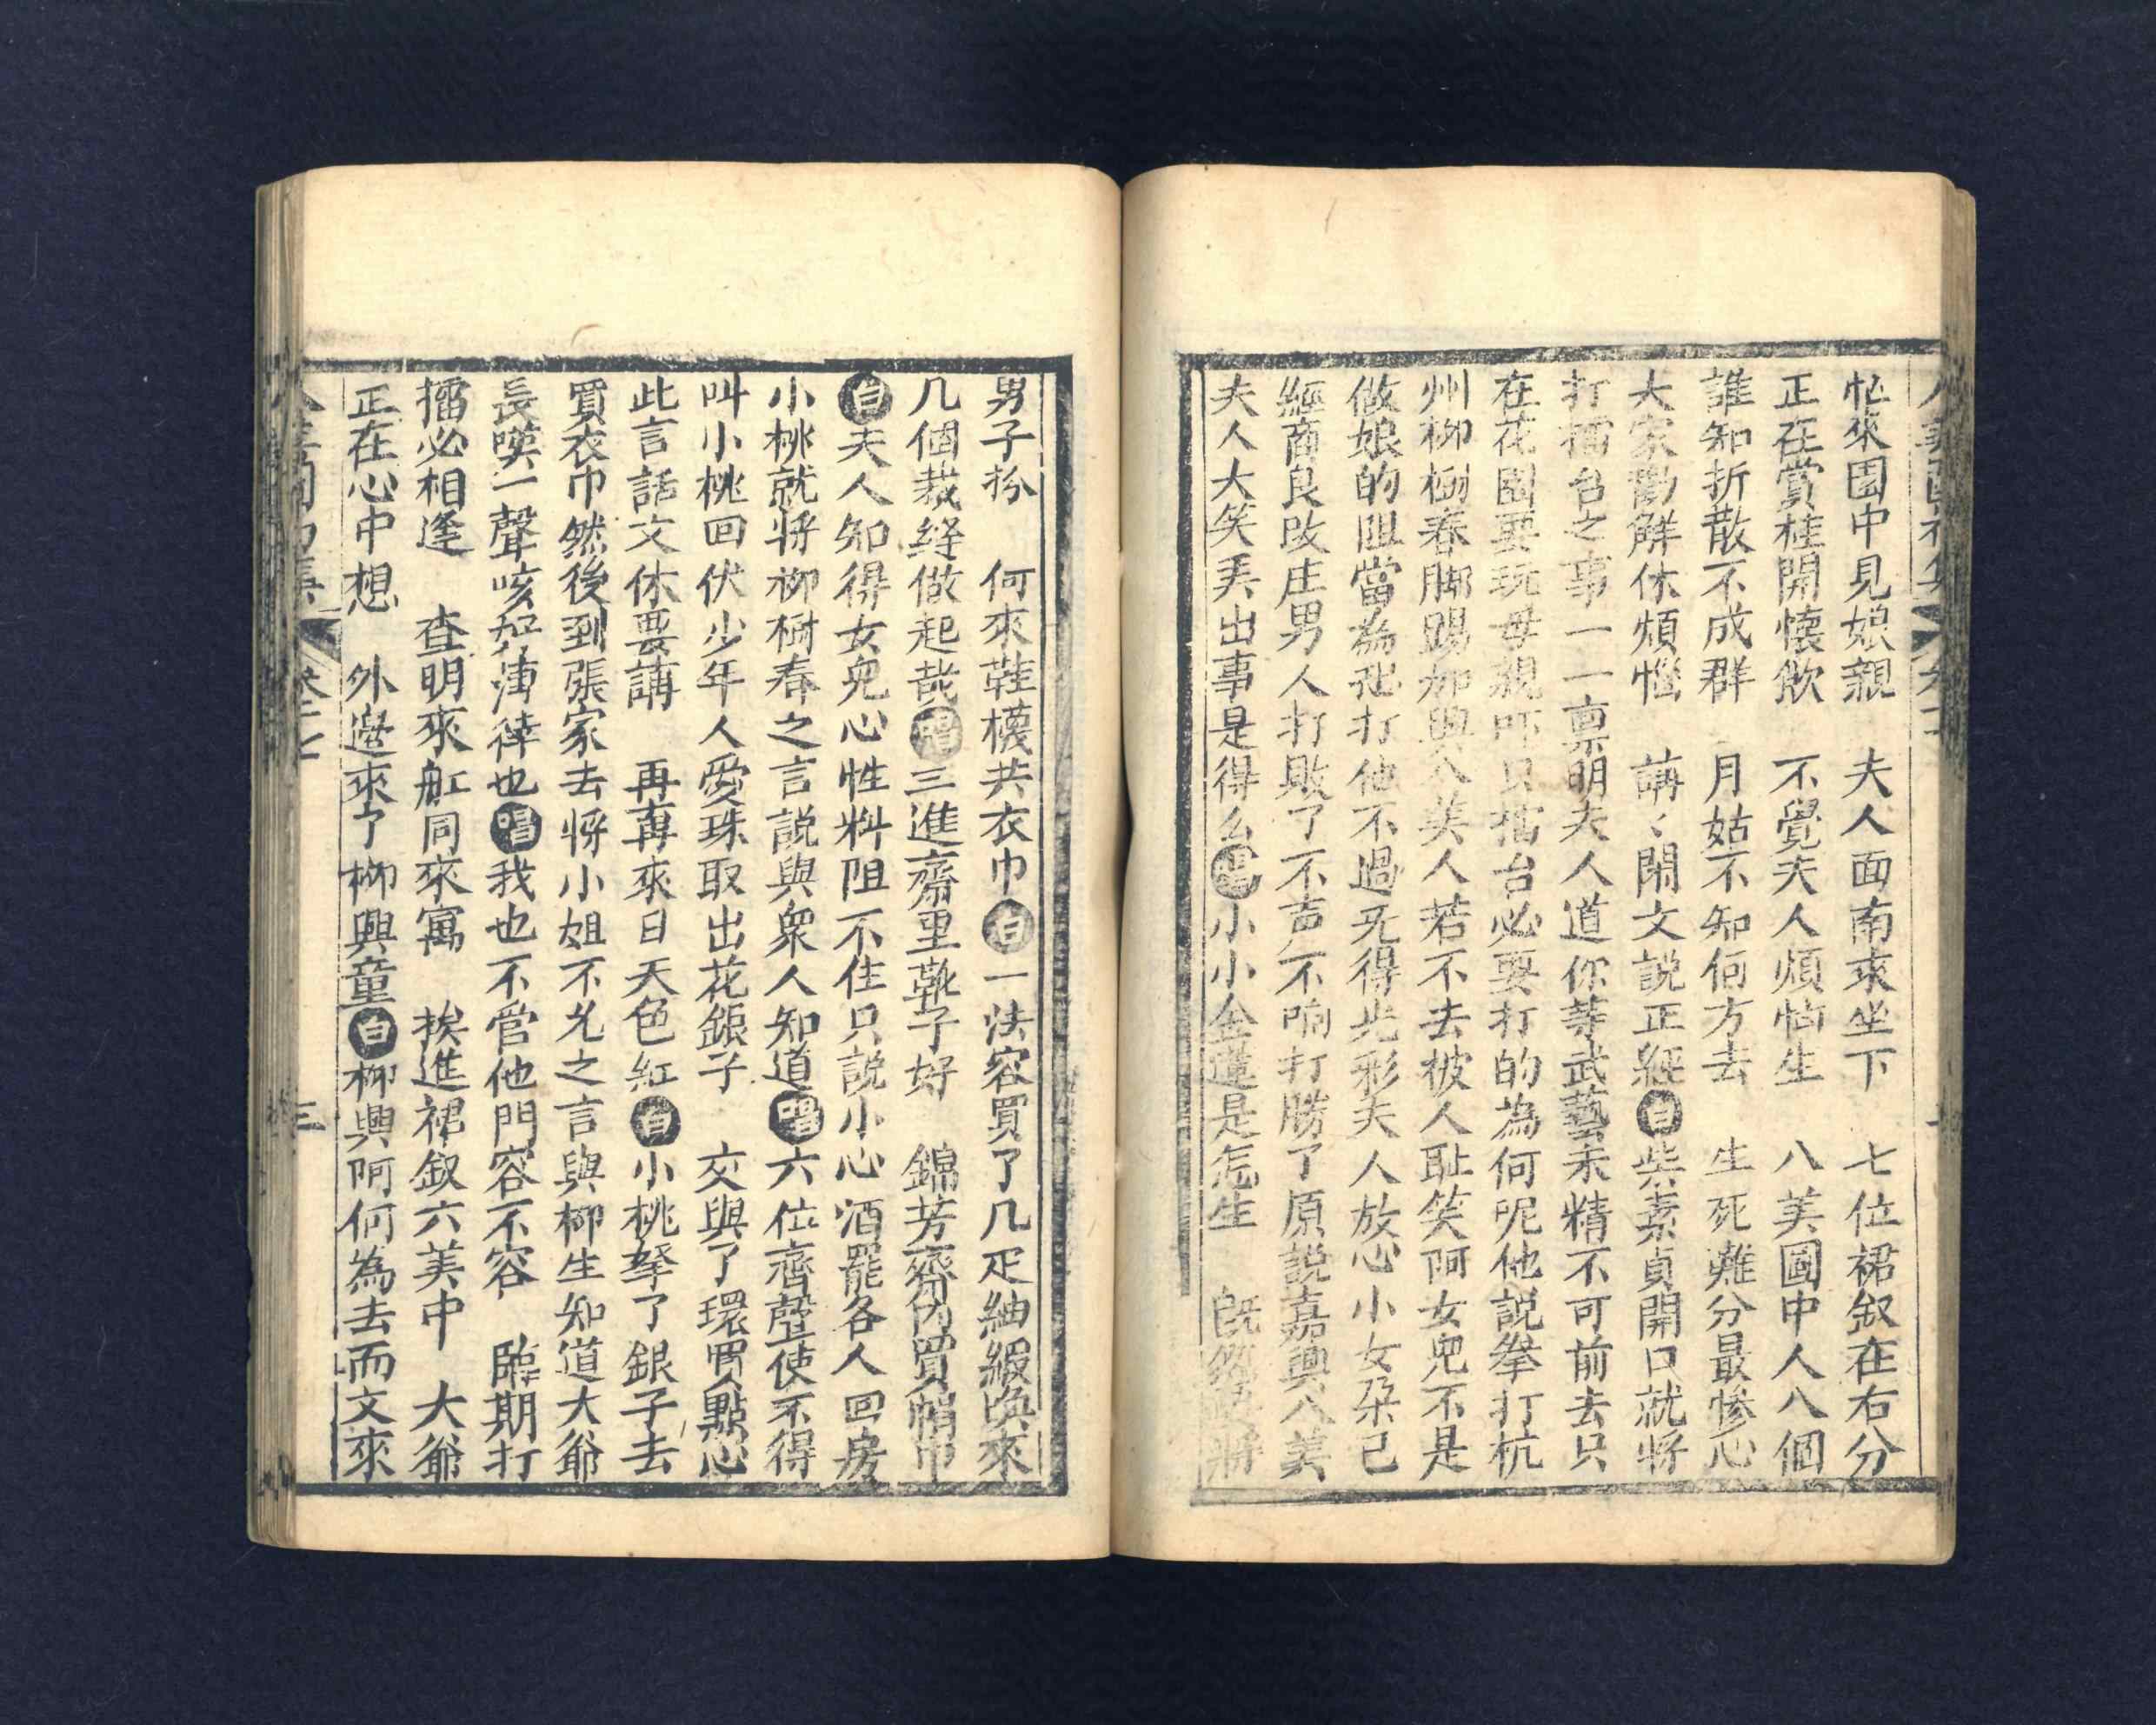 忙來園中見娘親　夫人面南來坐下　七位裙釵在右分
正在賞桂開懷飲　不覺夫人煩惱生　八美圖中人八個
誰知折散不成群　月姑不知何方去　生死难分最慘心
大家勸解休煩惱　講〻閑文説正經白柴素貞開口就將
打擂台之事一一禀明夫人道你等武藝未精不可前去只
在花園要玩母親吓只擂台必要打的為何呢他説拳打杭
州柳樹春脚踢加興八美人若不去被人耻笑阿女兒不是
做娘的阻當為孤打他不過死得光彩夫人放心小女朶已
經商良改庄男人打敗了不声不响打勝了原説嘉興八美
夫人大笑弄出事是得么唱小小金蓮是怎生　旣然要將
男子扮　何來鞋襪共衣巾白一法容買了几疋紬緞喚來
几個裁縫做起哉唱三進齋里靴子好　錦芳齋内買帽巾
白夫人知得女兒心性料阻不住只説小心酒罷各人回房
小桃就將柳樹春之言説與衆人知道唱六位齊聲使不得
叫小桃回伏少年人愛珠取出花銀子　交與了環買點心
此言話文休要講　再再來日天色紅白小桃拏了銀子去
買衣巾然後到張家去將小姐不允之言與柳生知道大爺
長嘆一聲咳好薄倖也唱我也不管他門容不容　臨期打
擂必相逢　查明來舡同來寓　挨進裙釵六美中　大爺
正在心中想　外邉來了柳興童白柳興阿何為去而文來